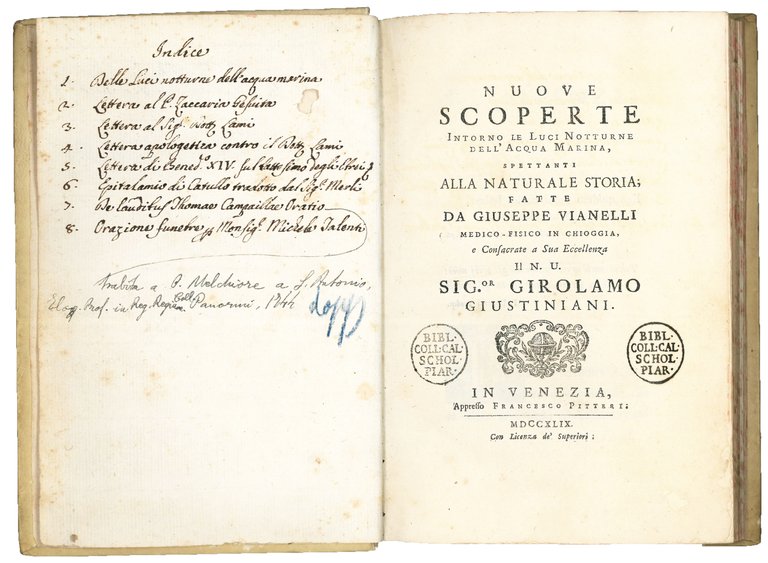 Indice
1. Delle Luci notturne dell'acqua marina
2. Lettera al P. Zaccaria Gesuita
3. Lettera al Sig.r Dott.r Lami
4. Lettera apologetica contro il Dott.r Lami
5. Lettera di Bened.o XIV. sul degli Ebrei
6. Epitalamio di Catullo tradotto dal Sig.r Merli
7. De laudibus Thomae Campaillae Oratio
8. Orazione funebre Monsig.r Michele Talenti
a P. Melchiore a S. Antonio,
Prof. in Reg. Coll. Panormi, 1844
NUOVE
SCOPERTE
INTORNO LE LUCI NOTTURNE
DELL'ACQUA MARINA,
SPETTANTI
ALLA NATURALE STORIA;
FATTE
DA GIUSEPPE VIANELLI
MEDICO-FISICO IN CHIOGGIA,
e Consacrate a Sua Eccellenza
Il N. U.
SIG.OR GIROLAMO
GIUSTINIANI.
BIBL.
COLL:CAL.
SCHOL-
PIAR.
BIBL.
COLL:CAL.
SCHOL-
PIAR.
IN VENEZIA,
Appresso FRANCESCO PITTERI;
MDCCXLIX.
Con Licenza de' Superiori;